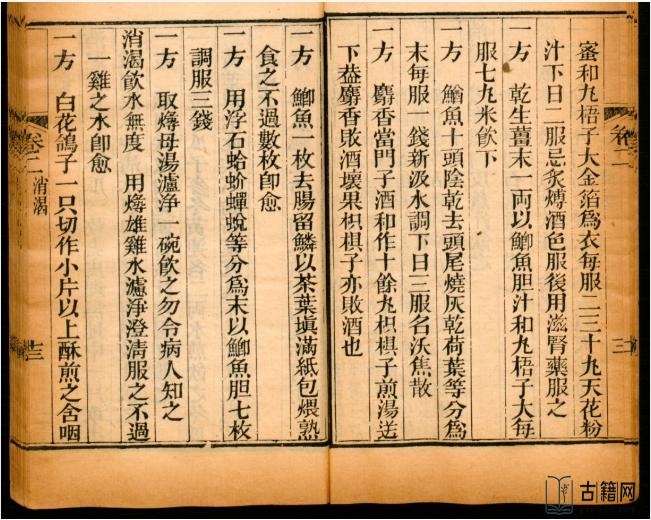 蜜和丸梧子大金箔爲衣每服二三十丸天花粉
汁下日二服忌炙煿酒色服後用滋腎藥服之
一方 乾生薑末一兩以鯽魚胆汁和丸梧子大每
服七丸米飲下
一方 鰌魚十頭陰乾去頭尾燒灰乾荷葉等分爲
末每服一錢新汲水調下日三服名沃焦散
一方 麝香當門子酒和作十餘丸枳椇子煎湯送
下葢麝香敗酒壞果枳椇子亦敗酒也
卷二
三
一方 鯽魚一枚去腸留鱗以茶葉塡滿紙包煨熟
食之不過數枚卽愈
一方 用浮石蛤蚧蟬蛻等分爲末以鯽魚胆七枚
調服三錢
一方 取燖母湯濾淨一碗飲之勿令病人知之
消渴飲水無度 用燖雄雞水濾淨澄清服之不過
一雞之水卽愈
一方 白花鴿子一只切作小片以上酥煎之含咽
卷二 消渴
三
古籍网